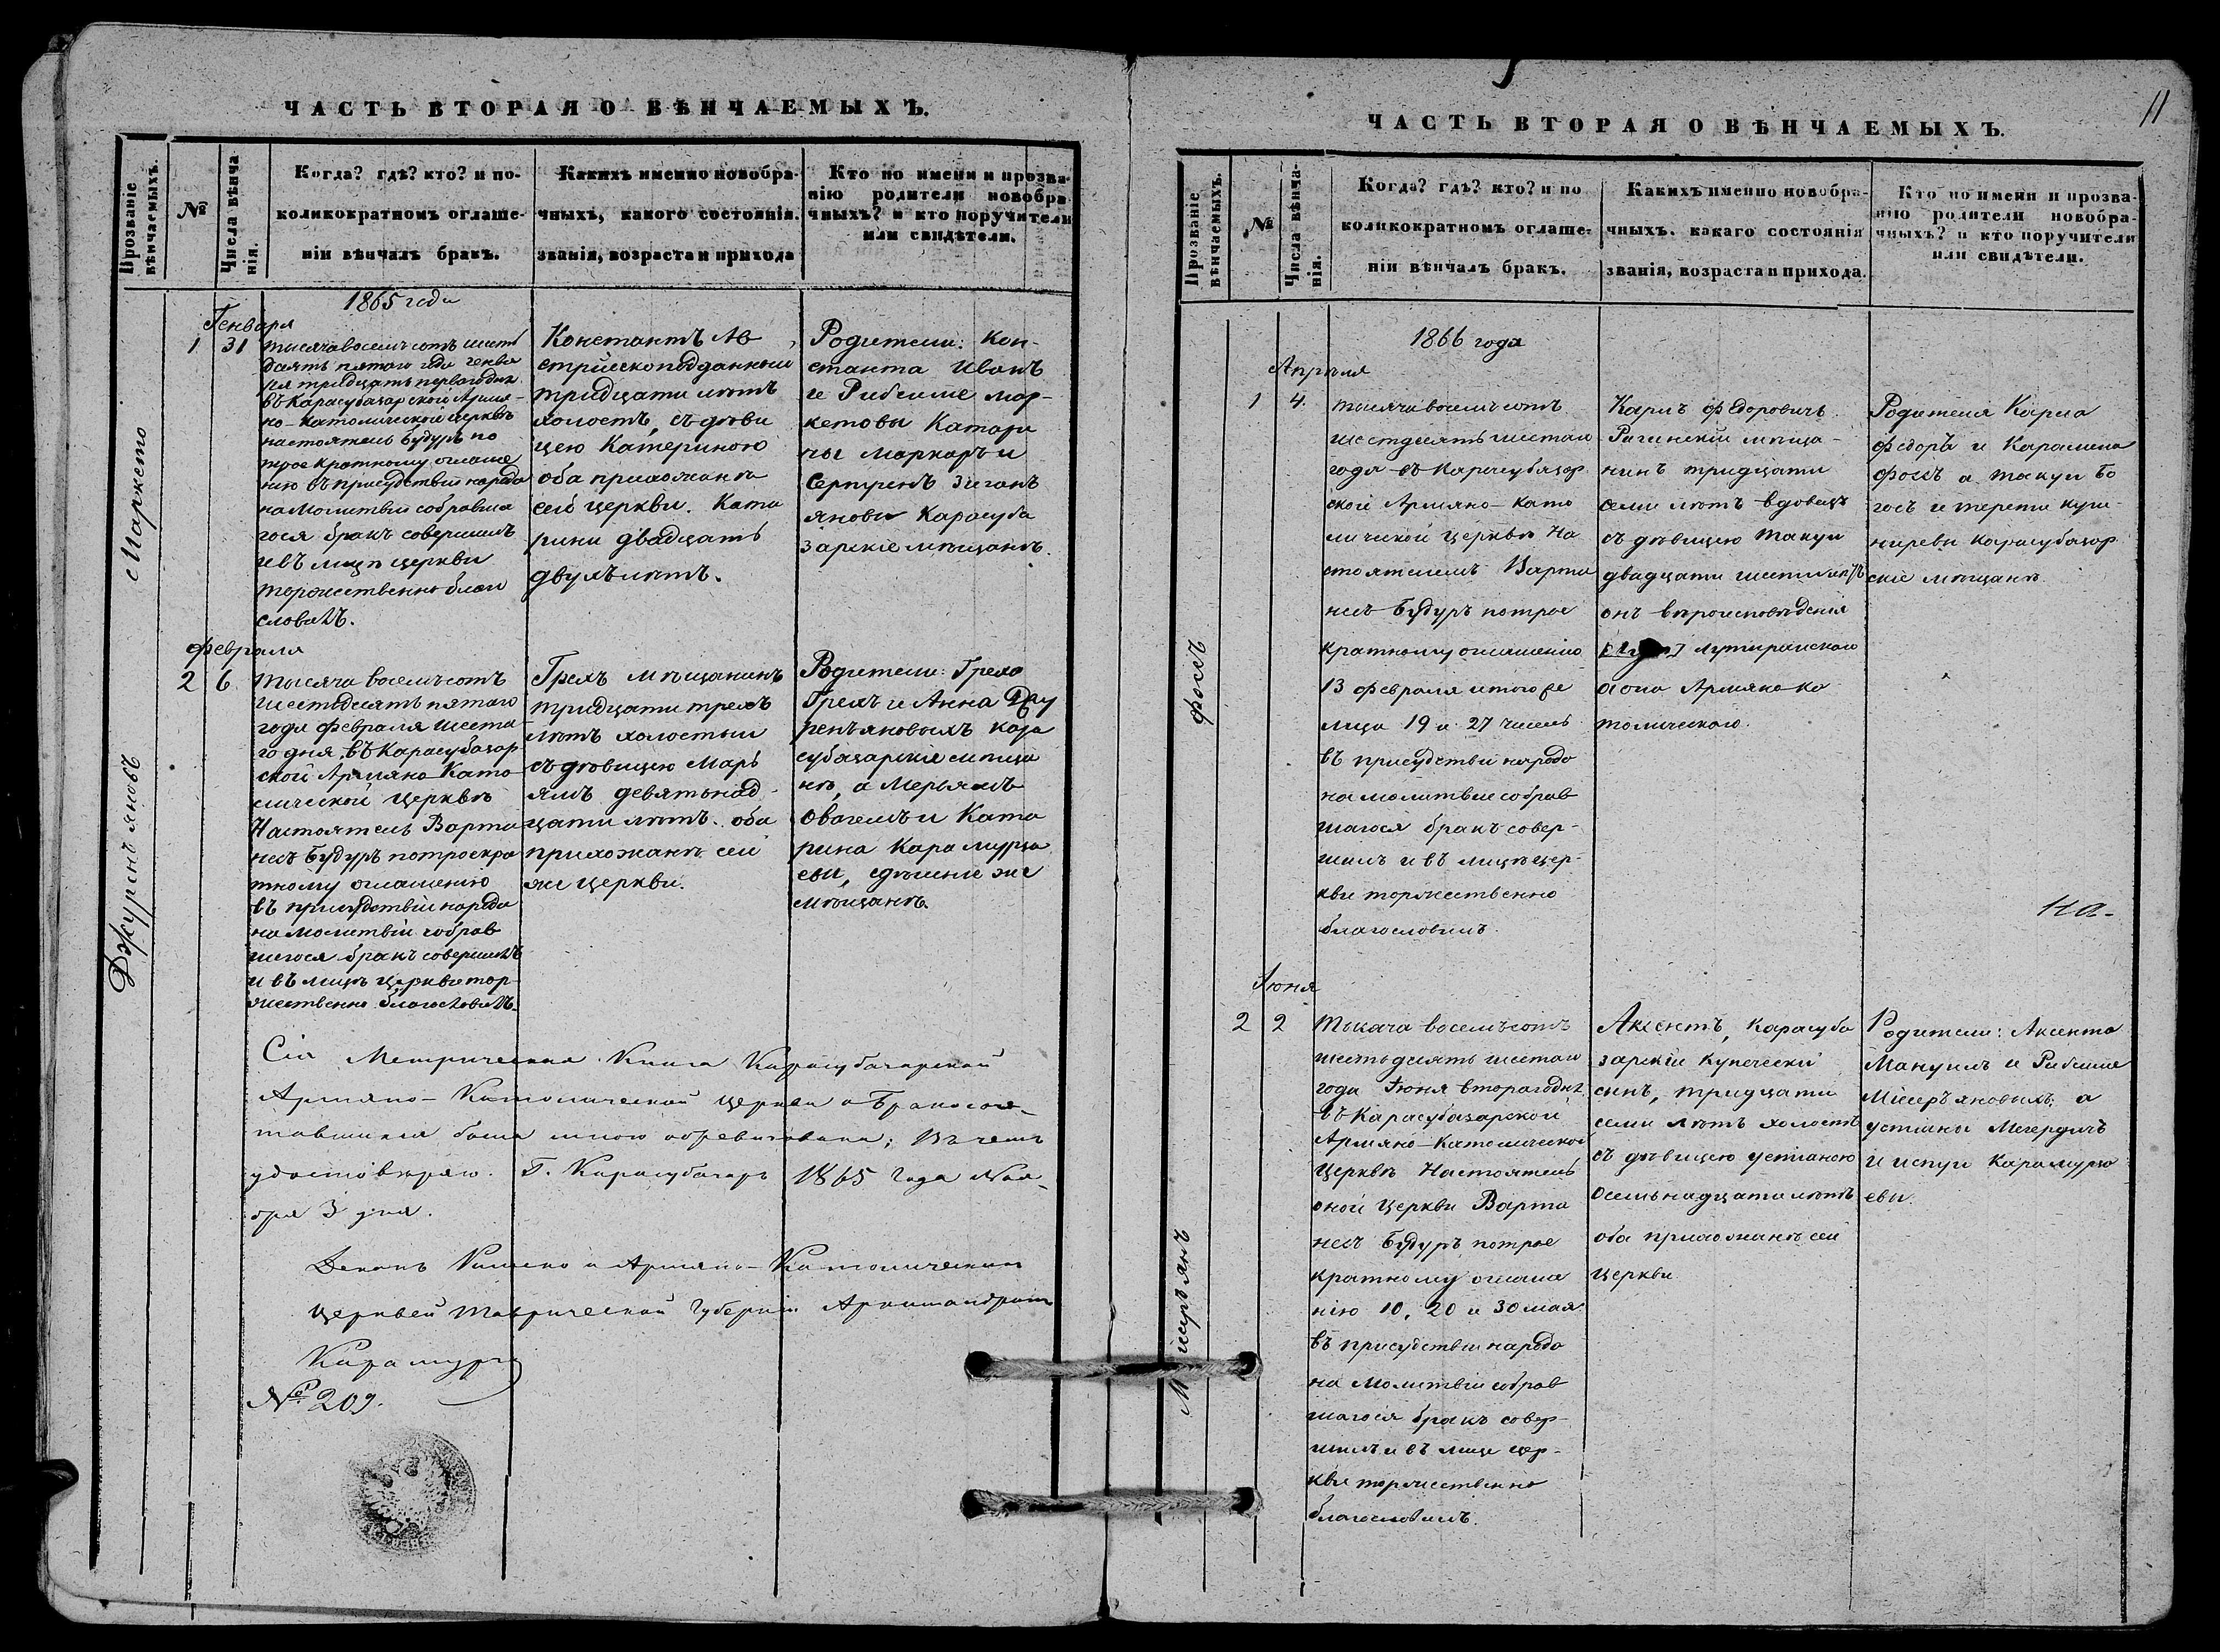 ЧАСТЬ ВТОРАЯ О ВѢНЧАЕМЫХЪ.
Прозваніе вѣнчаемыхъ.
№
Числа вѣнча-
нія.
Когда? гдѣ? кто? и по-
коликократномъ оглаше-
ніи вѣнчалъ бракъ.
Какихъ именно новобра-
чныхъ, какого состоянія.
званія, возраста и прихода
Кто по имени и прозва-
нію родители новобра-
чныхъ? и кто поручители
или свидѣтели.
1865 года
Генваря
Маркето
1 31
тысяча восемьсотъ шесть
десятъ пятого года генва
ря тридцать первого дня
въ Карасубазарской Армя-
но-католической церквѣ
настоятель Будуръ по
трое кратному оглаше
нію въ присудствіи народа
на молитвы собравша
гося бракъ совершилъ
и въ лицѣ церкви
торжественно благо
словилъ.
Константъ Ав
стрійскоподданный
тридцати лѣтъ
холостъ, съ дѣви
цею Катериною
оба прихожанѣ
сей церкви. Ката
рини двадцать
двухъ лѣтъ.
Родители: Кон-
станта Иванъ
и Рибсиме мар-
кетовы Катари
ны Маркаръ и
Серпуги Зиган
яновы Карасуба
зарскіе мѣщанѣ.
Февраля
Джуренъяновъ
2 6
Тысяча восемьсотъ
шестьдесятъ пятого
года февраля шеста-
го дня въ Карасубазар
ской Армяно Като
лической церквѣ
Настоятель Варта
несъ Будуръ по троекра
тному оглашенію
въ присудствіи народа
на молитвіи собрав
шегося бракъ совершилъ
и въ лицѣ церкви тор
жественно благословилъ.
Грехъ мѣщанинъ
тридцати трехъ
лѣтъ холостый
съ дѣвицею Марь
ямъ девятьнад-
цати лѣтъ. оба
прихожанѣ сей
же церкви.
Родители: Греха
Грехъ и Анна Джу
ренъяновыхъ кара
субазарскіе мѣща
нѣ, а Мерьямъ
Овагемъ и Ката
рина Карамурза
евы, здѣшніе же
мѣщанѣ.
Сія Метрическая Книга Карасубазарской
Армяно-Католической церкви о Бракосоче-
тавшихся была мною обревизована; Въ чемъ
удостовѣряю. Г. Карасубазаръ 1865 года Ноя-
бря 3 дня.
Деканъ Римско и Армяно-Католическихъ
церквей Таврической Губерніи Архимандритъ
Карамурза
№ 209.
11
ЧАСТЬ ВТОРАЯ О ВѢНЧАЕМЫХЪ.
Прозваніе вѣнчаемыхъ.
№
Числа вѣнча-
нія.
Когда? гдѣ? кто? и по
коликократномъ оглаше-
ніи вѣнчалъ бракъ.
Какихъ именно новобра-
чныхъ. какаго состоянія
званія, возраста и прихода.
Кто по имени и прозва-
нію родители новобра-
чныхъ? и кто поручители
или свидѣтели.
1866 года
Апрѣля
Фохъ
1 4.
тысяча восемьсотъ
шестдесятъ шестаго
года въ Карасубазар
ской Армяно-като
лической церквѣ На
стоятелемъ Варта
несъ Будуръ потрое
кратному оглашенію
13 февраля итого ме
сяца 19 и 27 чиселъ
въ присудствіи народа
на молитвіи собрав
шагося бракъ совер-
шилъ и въ лицѣ цер-
кви торжественно
благословилъ.
Карлъ Федоровичъ
мѣща-
нинъ тридцати
семи лѣтъ вдовецъ
съ дѣвицею Такуи
двадцати шести лѣтъ
онъ вѣроисповѣденія
лутиранского
а она Армяно ка
толического.
Родителя Карла
Федоръ и Каролина
Фохъ а Такуи Бо
госъ и терети
Карасубазар
скіе мѣщанѣ.
На-
Июня
2 2
Тысяча восемьсотъ
шестьдесятъ шестаго
года Июня второгодня
въ Карасубазарской
Армяно-Католической
Церквѣ Настоятель
оной Церкви Варта
несъ Будуръ потрое
кратному оглаше
нію 10, 20 и 30 мая
въ присудствіи народа
на молитвіи собрав
шагося бракъ совер-
шилъ и въ лице цер-
кви торжественно
благословилъ.
Аксентъ, Карасуба
зарскій купеческій
сынъ, тридцати
семи лѣтъ холостъ
съ дѣвицею устіаною
осемьнадцати лѣтъ
оба прихожанѣ сей
церкви
Родители: Аксента
Мануилъ и Рибсиме
Місеръяновыхъ; а
устіаны Мегердичъ
и искуи Карамурза
евы.